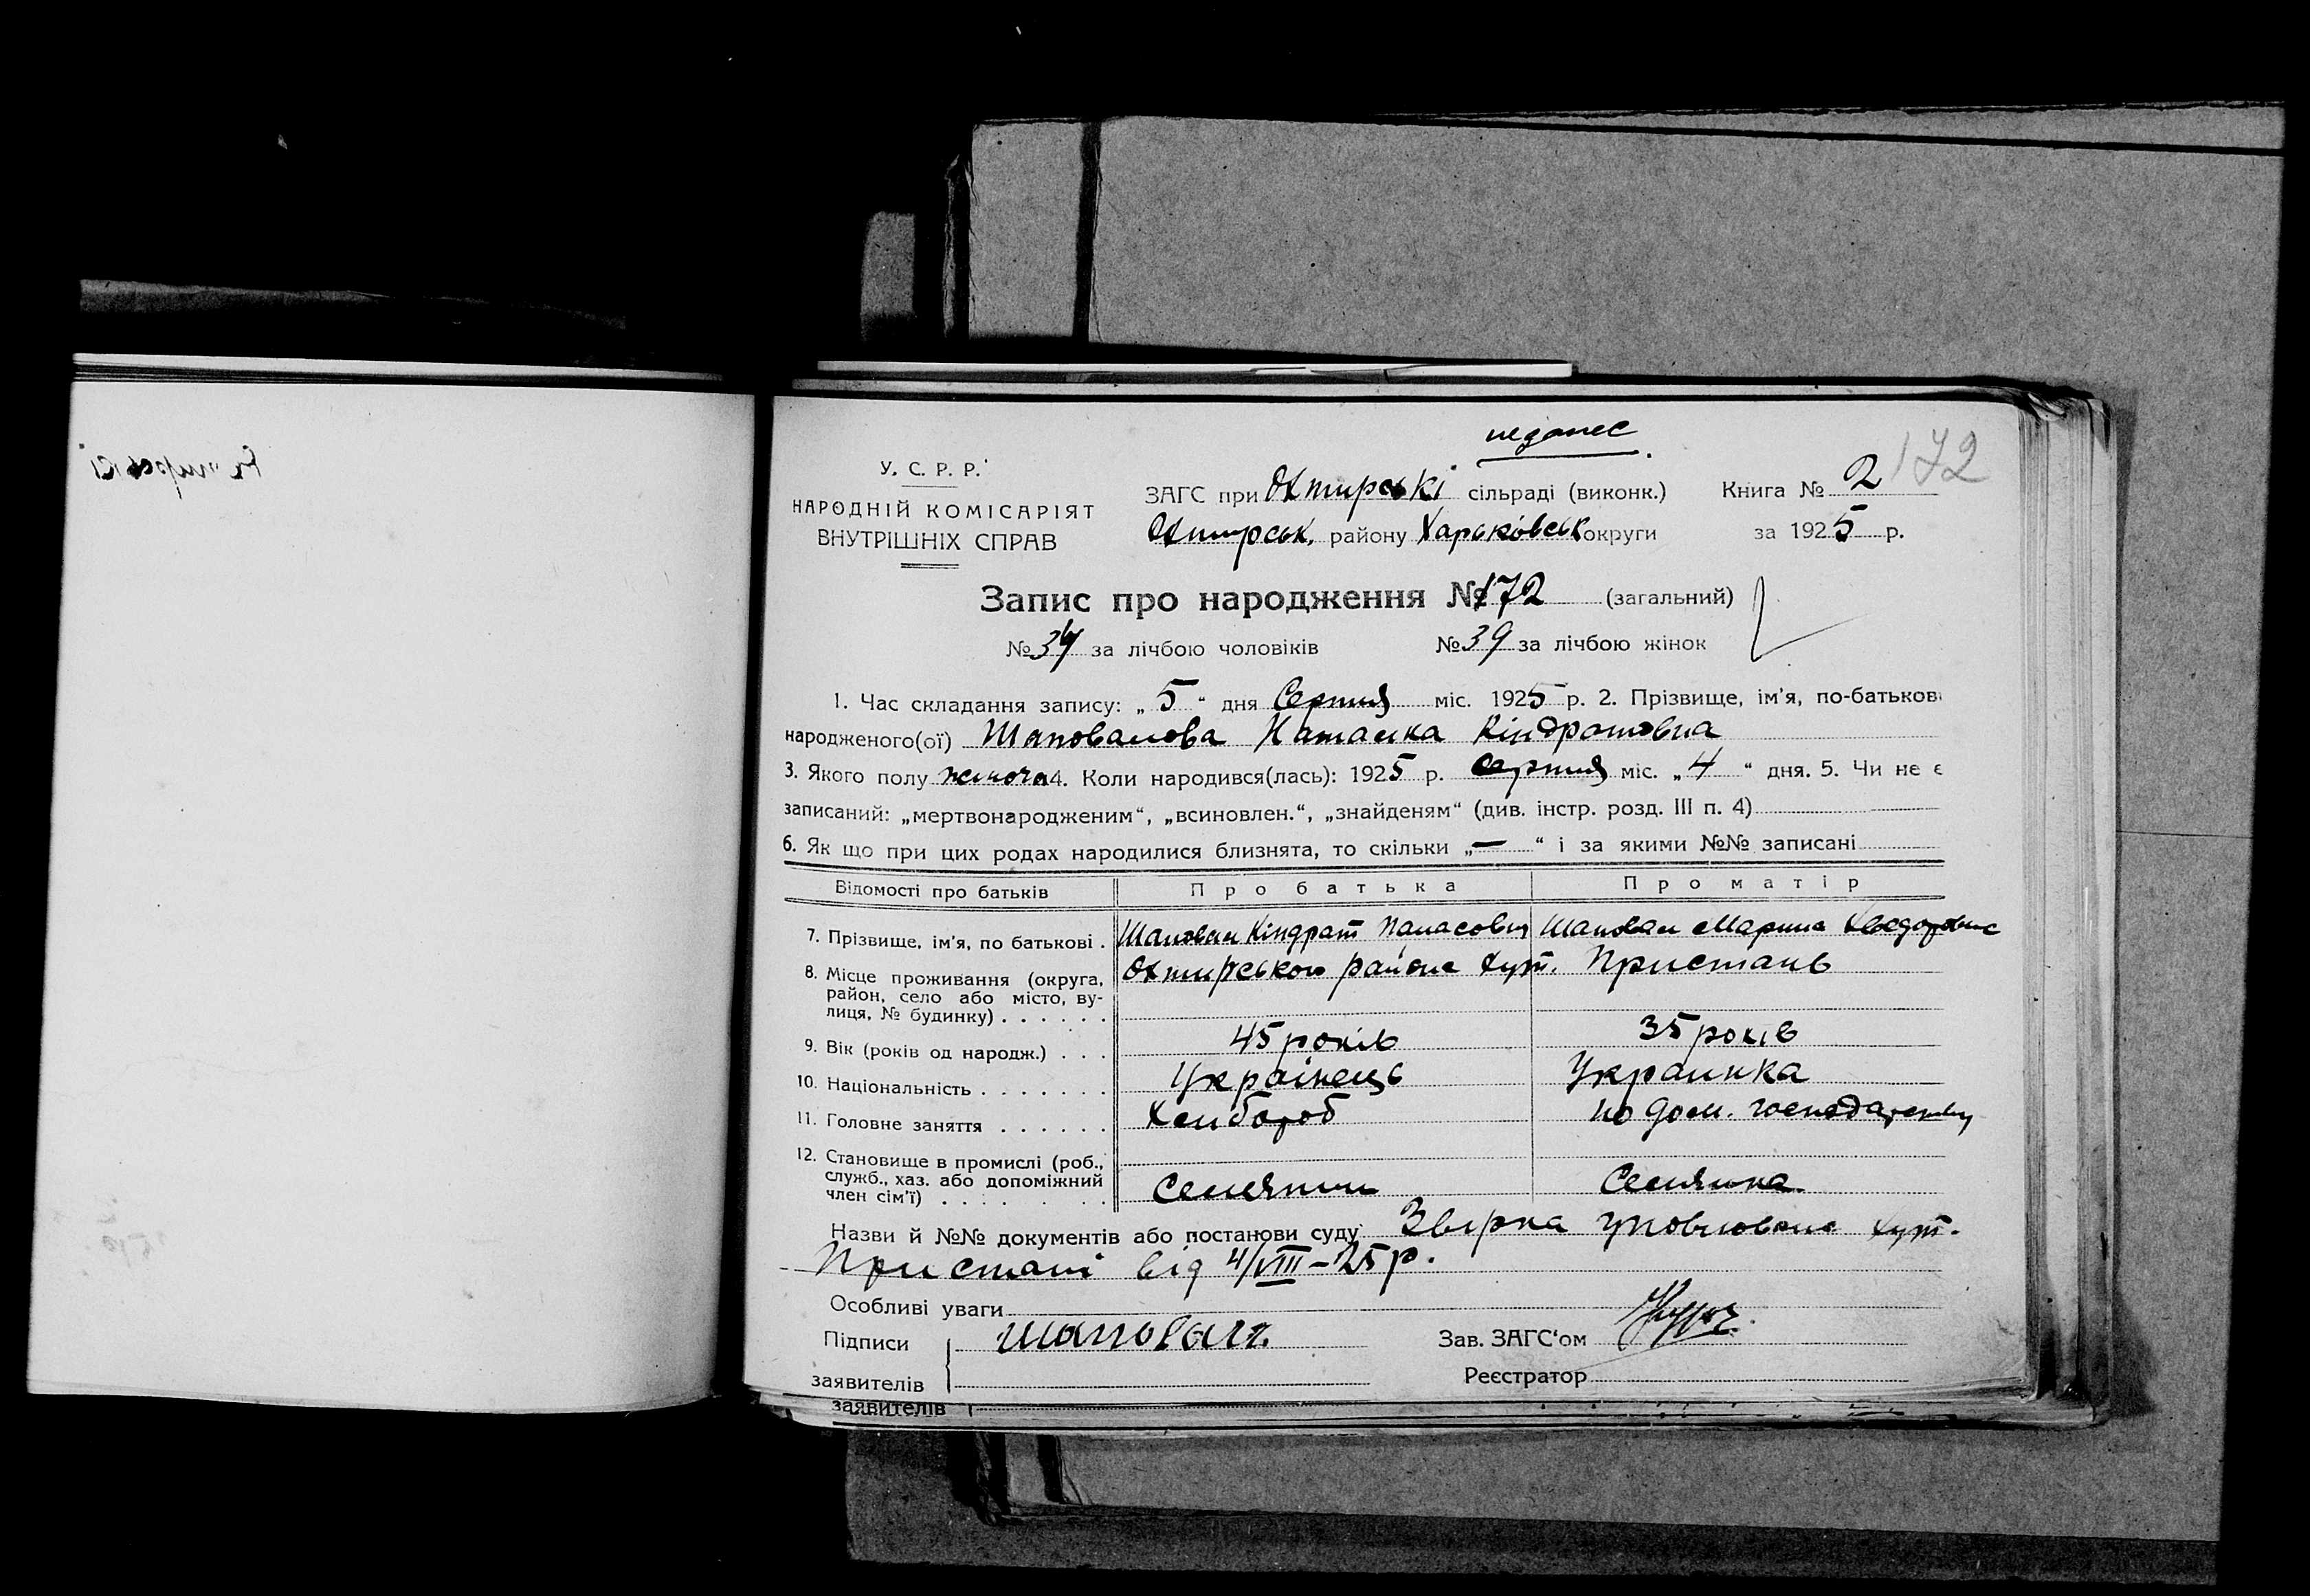 172
У. С. Р. Р.
НАРОДНІЙ КОМІСАРІЯТ
ВНУТРІШНІХ СПРАВ
ЗАГС при Охтирські сільраді (виконк.) Книга № 2
Охтирськ. району Харьківськ округи за 1925 р.
Запис про народження №172 (загальний)
№ за лічбою чоловіків №39 за лічбою жінок
1. Час складання запису: „5“ дня Серпня міс. 1925 р. 2. Прізвище, ім'я, по-батькові
народженого(ої) Шаповалова Наталка Кіндратовна
3. Якого полу жіноча 4. Коли народився(лась): 1925 р. серпня міс. „4“ дня. 5. Чи не є
записаний: „мертвонародженим“, „всиновлен.“, „знайденям“ (див. інстр. розд. III п. 4)
6. Як що при цих родах народилися близнята, то скільки „—“ і за якими №№ записані
Відомості про батьків Про батька Про матір
7. Прізвище, ім'я, по батькові . Шаповал Кіндрат Панасович Шаповал Марина Хведоровна
8. Місце проживання (округа, Охтирського района хут. Пристань
район, село або місто, ву-
лиця, № будинку) . . . . . .
9. Вік (років од народж.) . . . 45 років 35 років
10. Національність . . . . . . . Українець Украинка
11. Головне заняття . . . . . . Хлибороб по дом. господарству
12. Становище в промислі (роб.,
служб., хаз. або допоміжний
член сім'ї) . . . . . . . Селянин Селянка
Назви й №№ документів або постанови суду: хут.
Пристані від 4/VIII–25 р.
Особливі уваги
Підписи Шаповал Зав. ЗАГС'ом
заявителів Реєстратор
заявителів